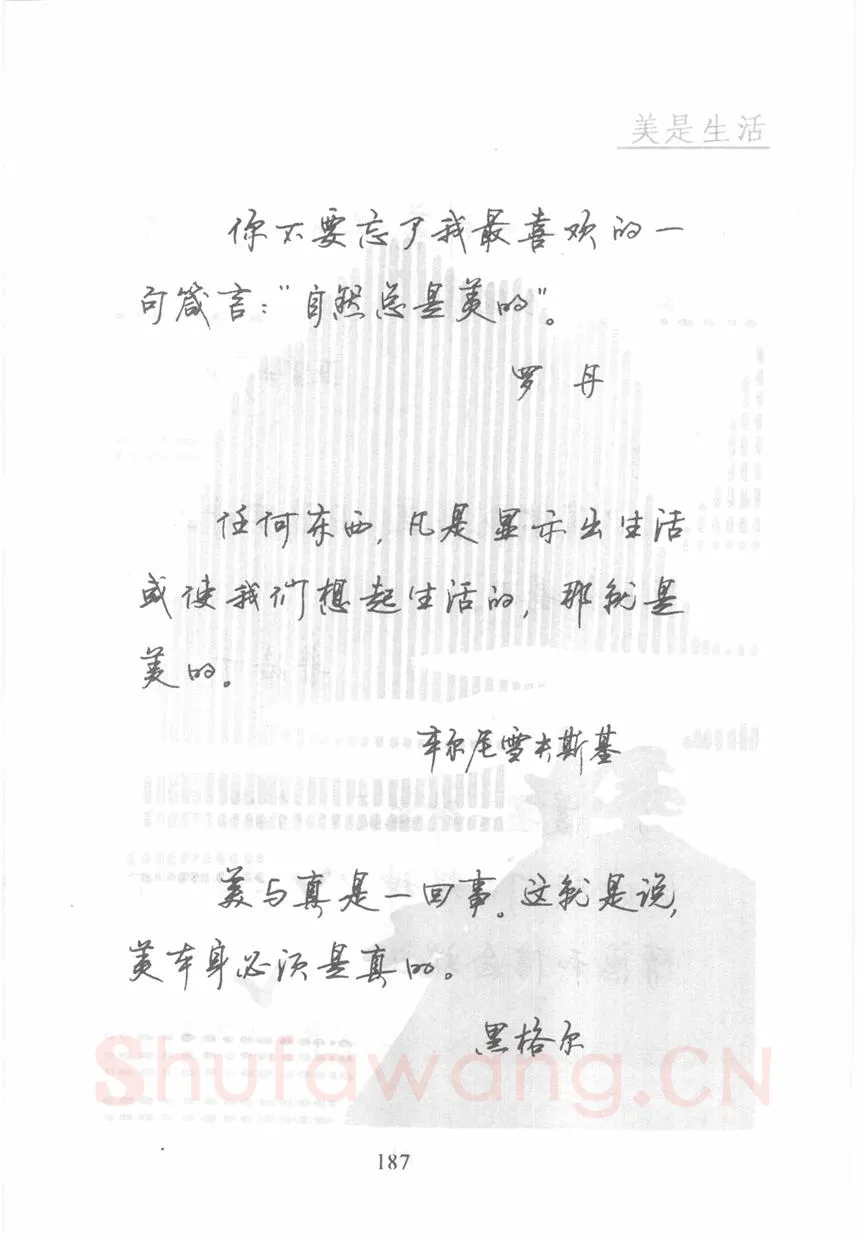 美是生活
你不要忘了我最喜欢的一
句箴言:“自然总是美的”。
罗 丹
任何东西,凡是显示出生活
或使我们想起生活的,那就是
美的。
车尔尼雪夫斯基
美与真是一回事。这就是说,
美本身必须是真的。
黑格尔
Shufawang.CN
187